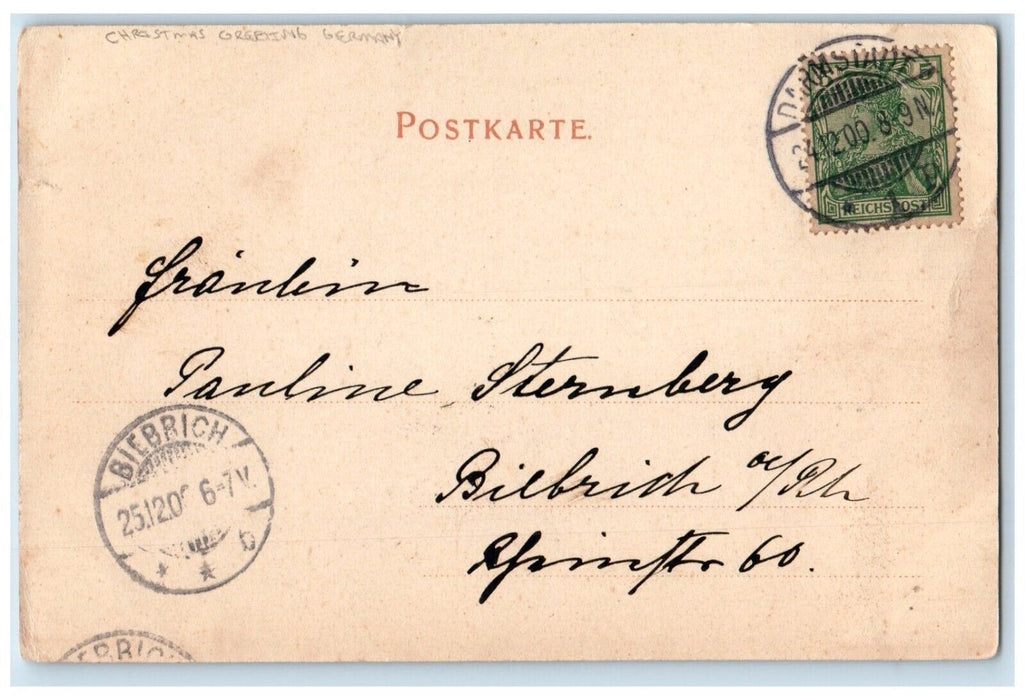 CHRISTMAS GREETING GERMANY
POSTKARTE.
DARMSTADT
24.12.00 8-9N
5
REICHSPOST
Fräulein
Pauline Sternberg
Biebrich a/Rh
Rheinstr 60.
BIEBRICH
25.12.0 6-7V.
b
EBRIC